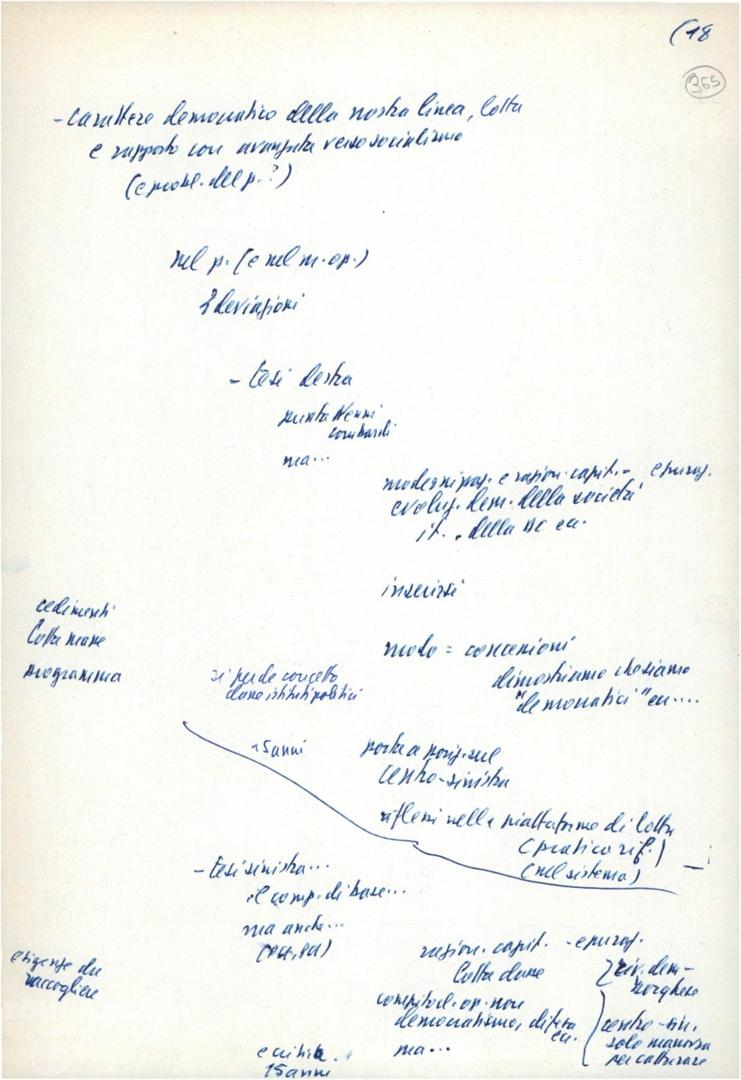 (18
365
- carattere democratico della nostra linea, lotta
e rapporto con avanzata verso socialismo
(e probl. del p.?)
nel p. (e nel m. op.)
2 deviazioni
- tesi destra
punta Nenni
Lombardi
ma...
modernizzaz. e razion. capit. - epuraz.
evoluz. dem. della società
it., della DC ecc.
inserirsi
modo = concessioni
dimostriamo che siamo
"democratici" ecc....
cedimenti
lotta masse
programma
si perde concetto
classe istituti politici
- 15 anni
porta a posiz. sul
centro-sinistra
riflessi nella piattaforma di lotta
(pratico rif.)
(nel sistema)
- tesi sinistra...
il comp. di base...
ma anche...
razion. capit. - epuraz.
lotta classe
riv. dem-
borghese
compito cl. op. non
democratismo, difesa
ecc.
ma...
centro-sin.
solo manovra
per catturare
esigenze da
raccogliere
e critica
15 anni